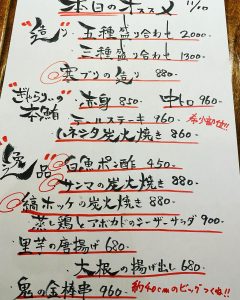 本日のオススメ 11/10
造り
五種盛り合わせ 2000-
三種盛り合わせ 1300-
寒ブリの造り 880-
ぎんらりぃの本鮪
赤身 850- 中トロ 960-
ステーキ 960- 希少部位!!
ハネシタ炭火焼き 860-
逸品
白魚ポン酢 450-
サンマの炭火焼き 880-
縞ホッケの炭火焼き 880-
蒸し鶏とアボカドのシーザーサラダ 900-
里芋の唐揚げ 680-
大根の揚げ出し 680-
鬼の金棒串 960- 約40cmのビッグつくね!!